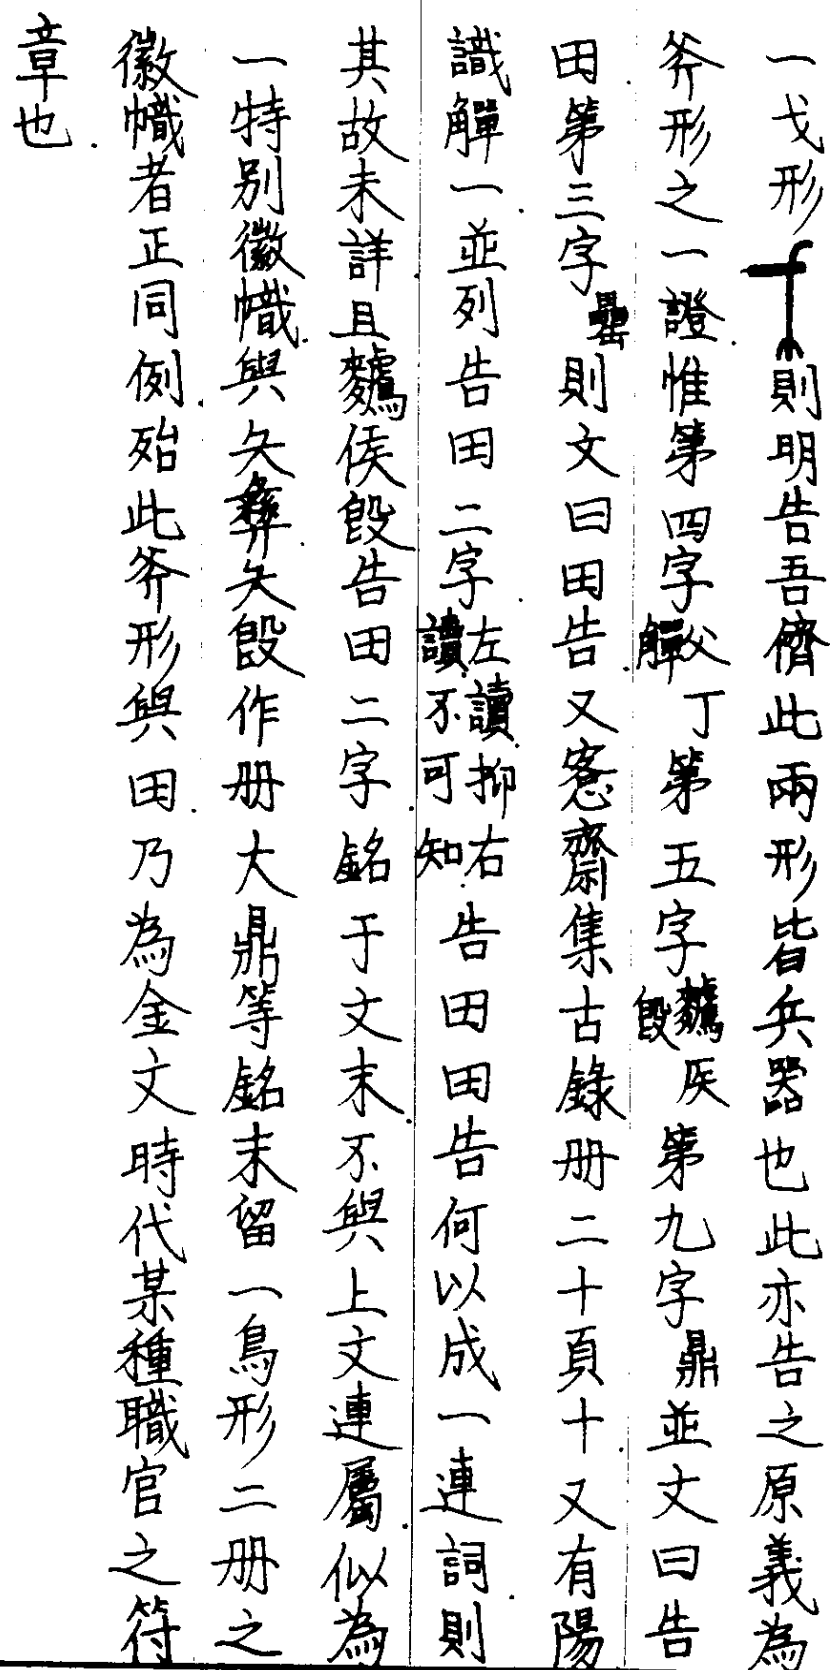 一戈形則明告吾儕此兩形皆兵器也此亦告之原義為
斧形之一證惟第四字父丁觶第五字䵼侯𣪘第九字鼎並文曰告
田第三字罍則文曰田告又愙齋集古錄冊二十頁十又有陽
識觶一並列告田二字左讀抑右讀不可知告田田告何以成一連詞則
其故未詳且侯𣪘告田二字銘于文末不與上文連屬似為
一特別徽幟與夨彝夨𣪘作冊大鼎等銘末留一鳥形二冊之
徽幟者正同例殆此斧形與田乃為金文時代某種職官之符
章也